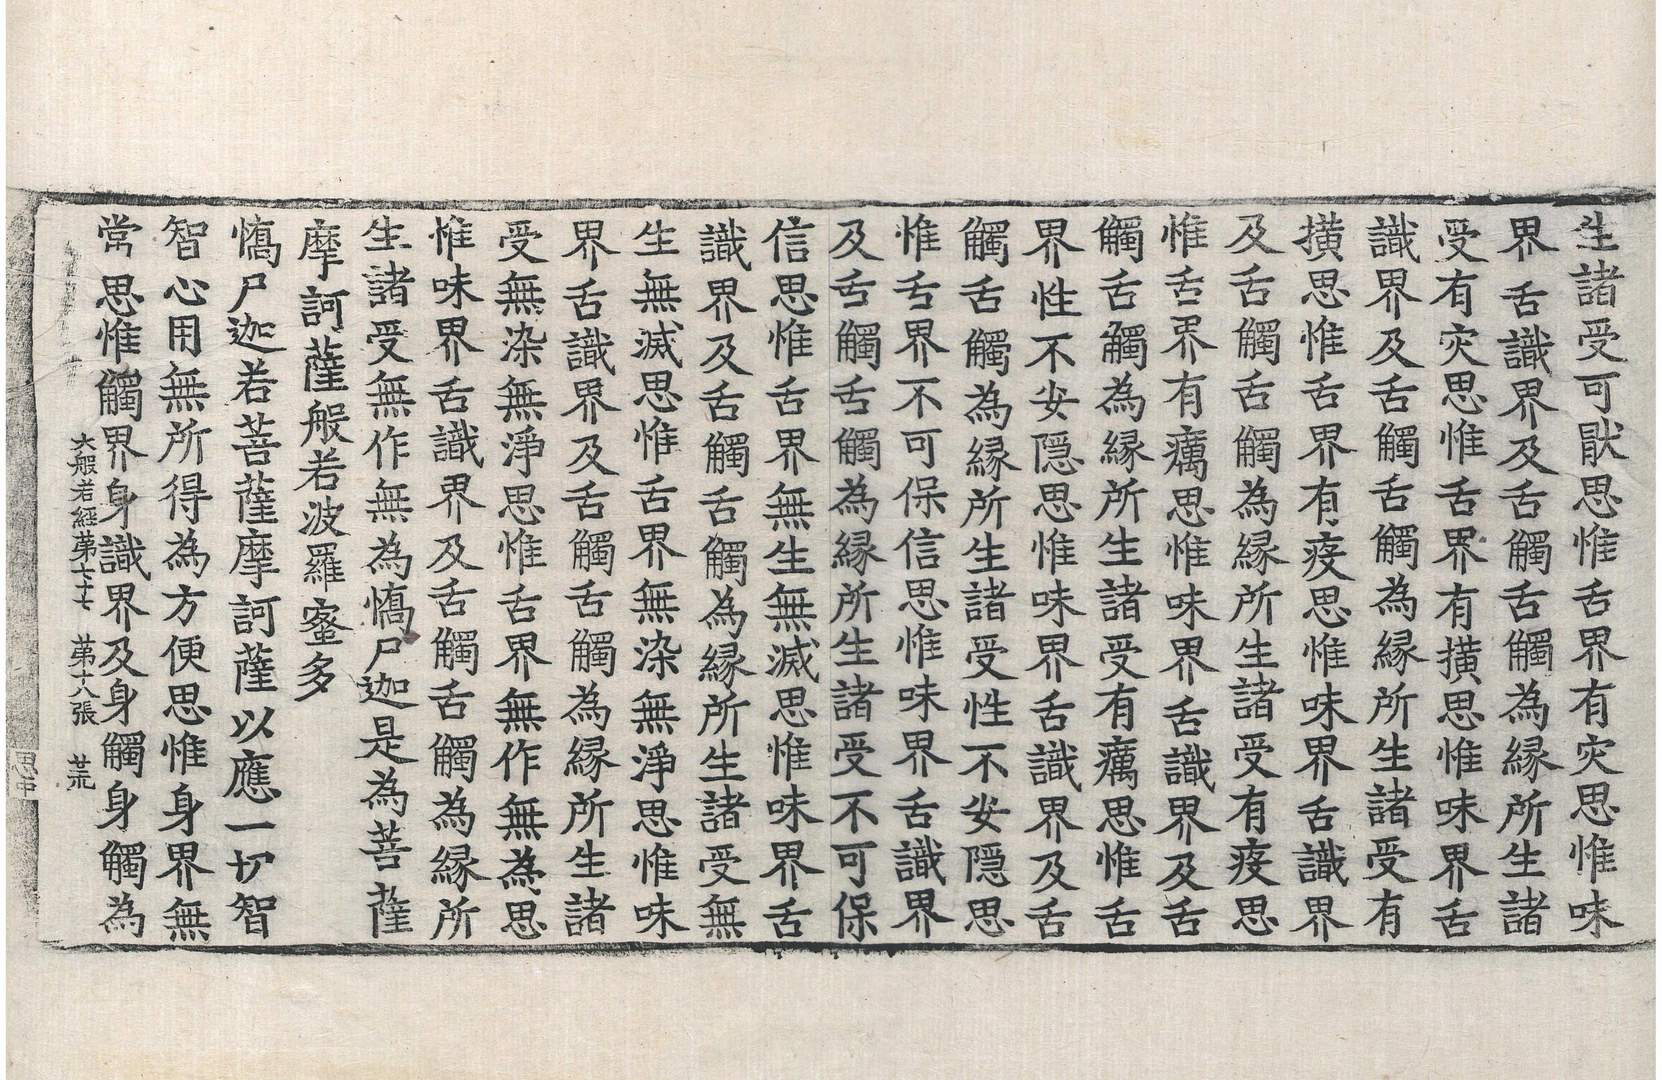 生諸受可猒思惟舌界有灾思惟味
界舌識界及舌觸舌觸為縁所生諸
受有灾思惟舌界有撗思惟味界舌
識界及舌觸舌觸為縁所生諸受有
撗思惟舌界有疫思惟味界舌識界
及舌觸舌觸為縁所生諸受有疫思
惟舌界有癘思惟味界舌識界及舌
觸舌觸為縁所生諸受有癘思惟舌
界性不安隱思惟味界舌識界及舌
觸舌觸為縁所生諸受性不安隱思
惟舌界不可保信思惟味界舌識界
及舌觸舌觸為縁所生諸受不可保
信思惟舌界無生無滅思惟味界舌
識界及舌觸舌觸為縁所生諸受無
生無滅思惟舌界無染無淨思惟味
界舌識界及舌觸舌觸為縁所生諸
受無染無淨思惟舌界無作無為思
惟味界舌識界及舌觸舌觸為縁所
生諸受無作無為憍尸迦是為菩薩
摩訶薩般若波羅蜜多
憍尸迦若菩薩摩訶薩以應一切智
智心用無所得為方便思惟身界無
常思惟觸界身識界及身觸身觸為
大般若經第七十七 第六張 荒
思中